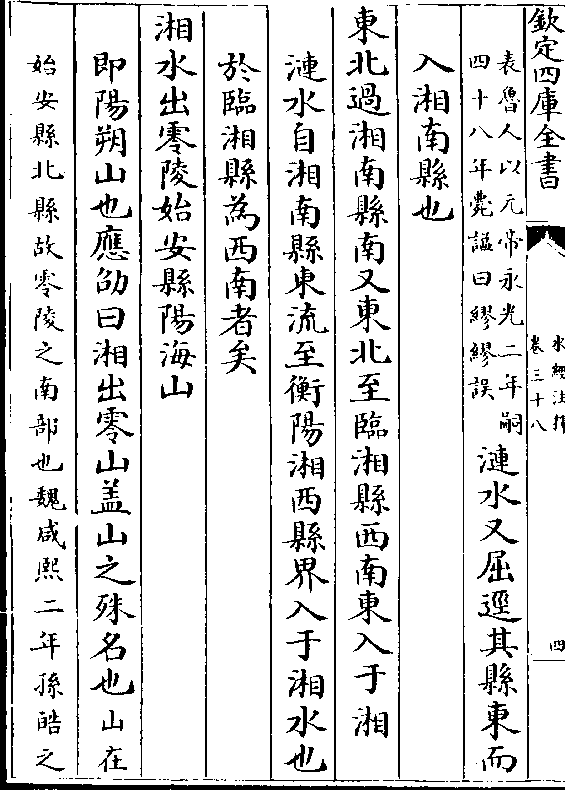 欽定四庫全書
水經注釋
卷三十八
四
表魯人以元帝永光二年嗣
四十八年薨諡曰繆繆誤
漣水又屈逕其縣東而
入湘南縣也
東北過湘南縣南又東北至臨湘縣西南東入于湘
漣水自湘南縣東流至衡陽湘西縣界入于湘水也
於臨湘縣為西南者矣
湘水出零陵始安縣陽海山
即陽朔山也應劭曰湘出零山盖山之殊名也山在
始安縣北縣故零陵之南部也魏咸熙二年孫皓之